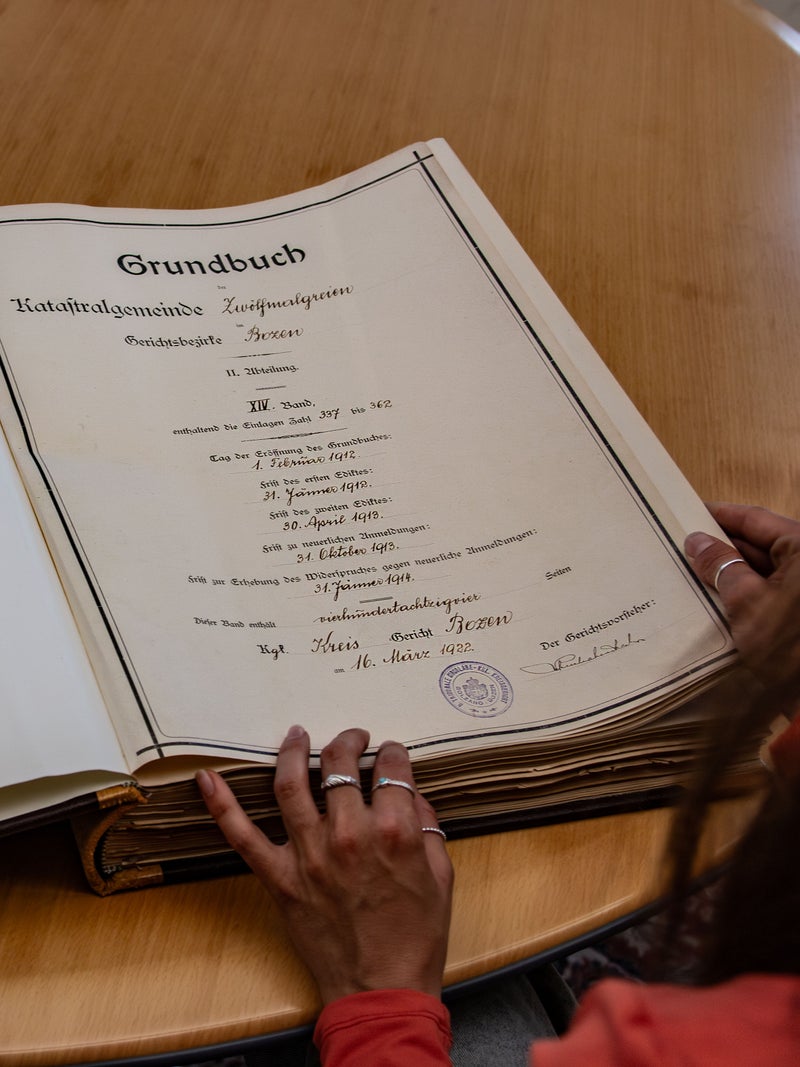 Grundbuch
der
Katastralgemeinde Zwölfmalgreien
im
Gerichtsbezirke Bozen
II. Abteilung.
XIV. Band,
enthaltend die Einlagen Zahl 337 bis 362
Tag der Eröffnung des Grundbuches:
1. Februar 1912.
Frist des ersten Ediktes:
31. Jänner 1913.
Frist des zweiten Ediktes:
30. April 1913.
Frist zu neuerlichen Anmeldungen:
31. Oktober 1913.
Frist zur Erhebung des Widerspruches gegen neuerliche Anmeldungen:
31. Jänner 1914.
Dieser Band enthält vierhundertachtzigvier Seiten
Kgl. Kreis Gericht Bozen
am 16. März 1922.
Der Gerichtsvorsteher: